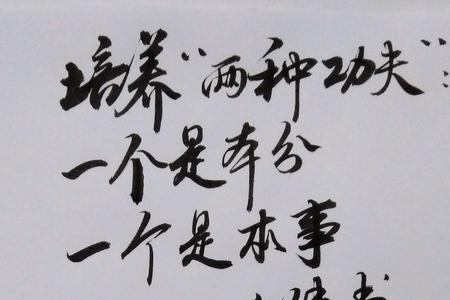 培养“两种功夫”：
一个是本分
一个是本事